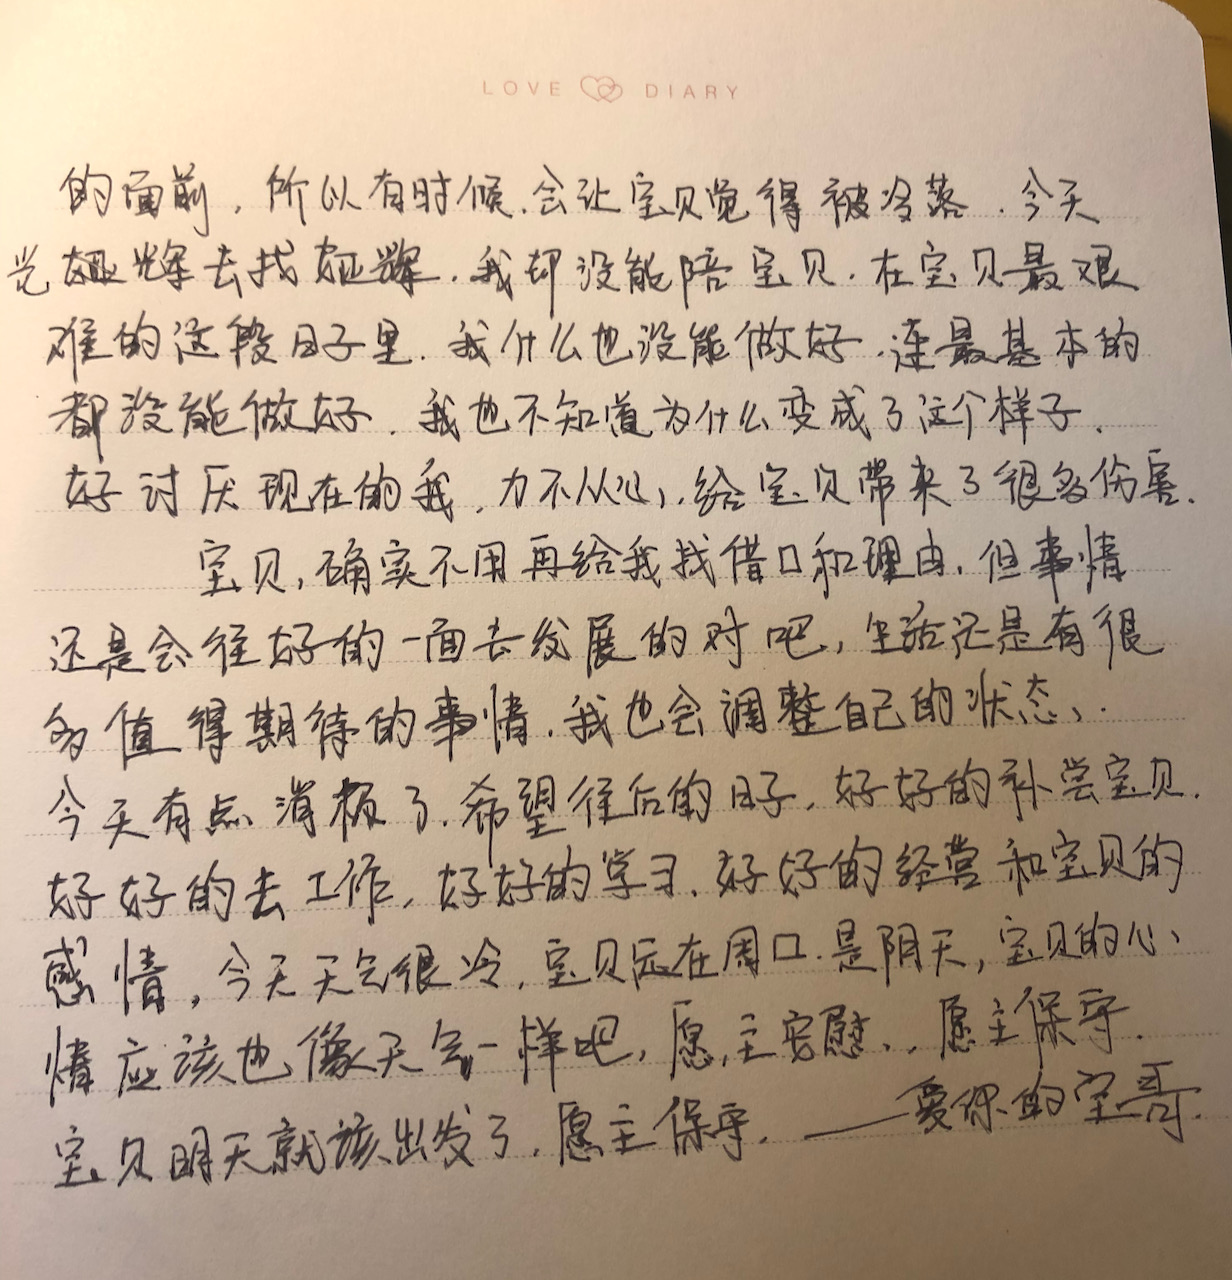 LOVE DIARY
的面前，所以有时候，会让宝贝觉得被冷落．今天
去找．我却没能陪宝贝．在宝贝最艰
难的这段日子里．我什么也没能做好．连最基本的
都没能做好．我也不知道为什么变成了这个样子．
好讨厌现在的我，力不从心，给宝贝带来了很多伤害．
宝贝，确实不用再给我找借口和理由．但事情
还是会往好的一面去发展的对吧，生活还是有很
多值得期待的事情．我也会调整自己的状态．
今天有点消极了．希望往后的日子，好好的补尝宝贝．
好好的去工作，好好的学习．好好的经营和宝贝的
感情，今天天气很冷，宝贝远在周口．是阴天，宝贝的心
情应该也像天气一样吧，愿主安慰，愿主保守．
宝贝明天就该出发了．愿主保守．——爱你的宝哥．